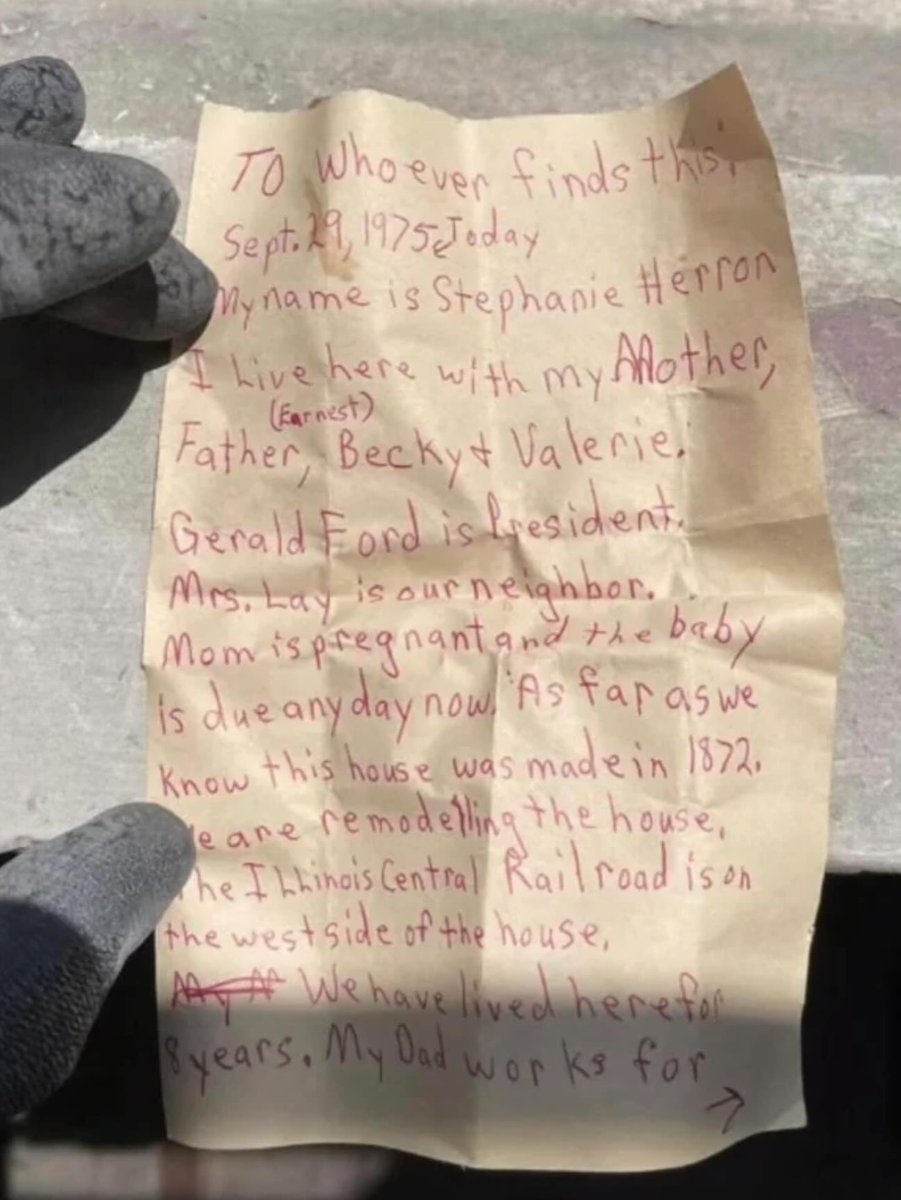 TO Whoever finds this,
Sept. 29, 1975 Today
My name is Stephanie Herron
I Live here with my Mother,
(Earnest)
Father, Becky & Valerie.
Gerald Ford is President.
Mrs. Lay is our neighbor.
Mom is pregnant and the baby
is due any day now. As far as we
know this house was made in 1872.
We are remodelling the house.
The Illinois Central Railroad is on
the west side of the house.
We have lived here for
8 years. My Dad works for
→